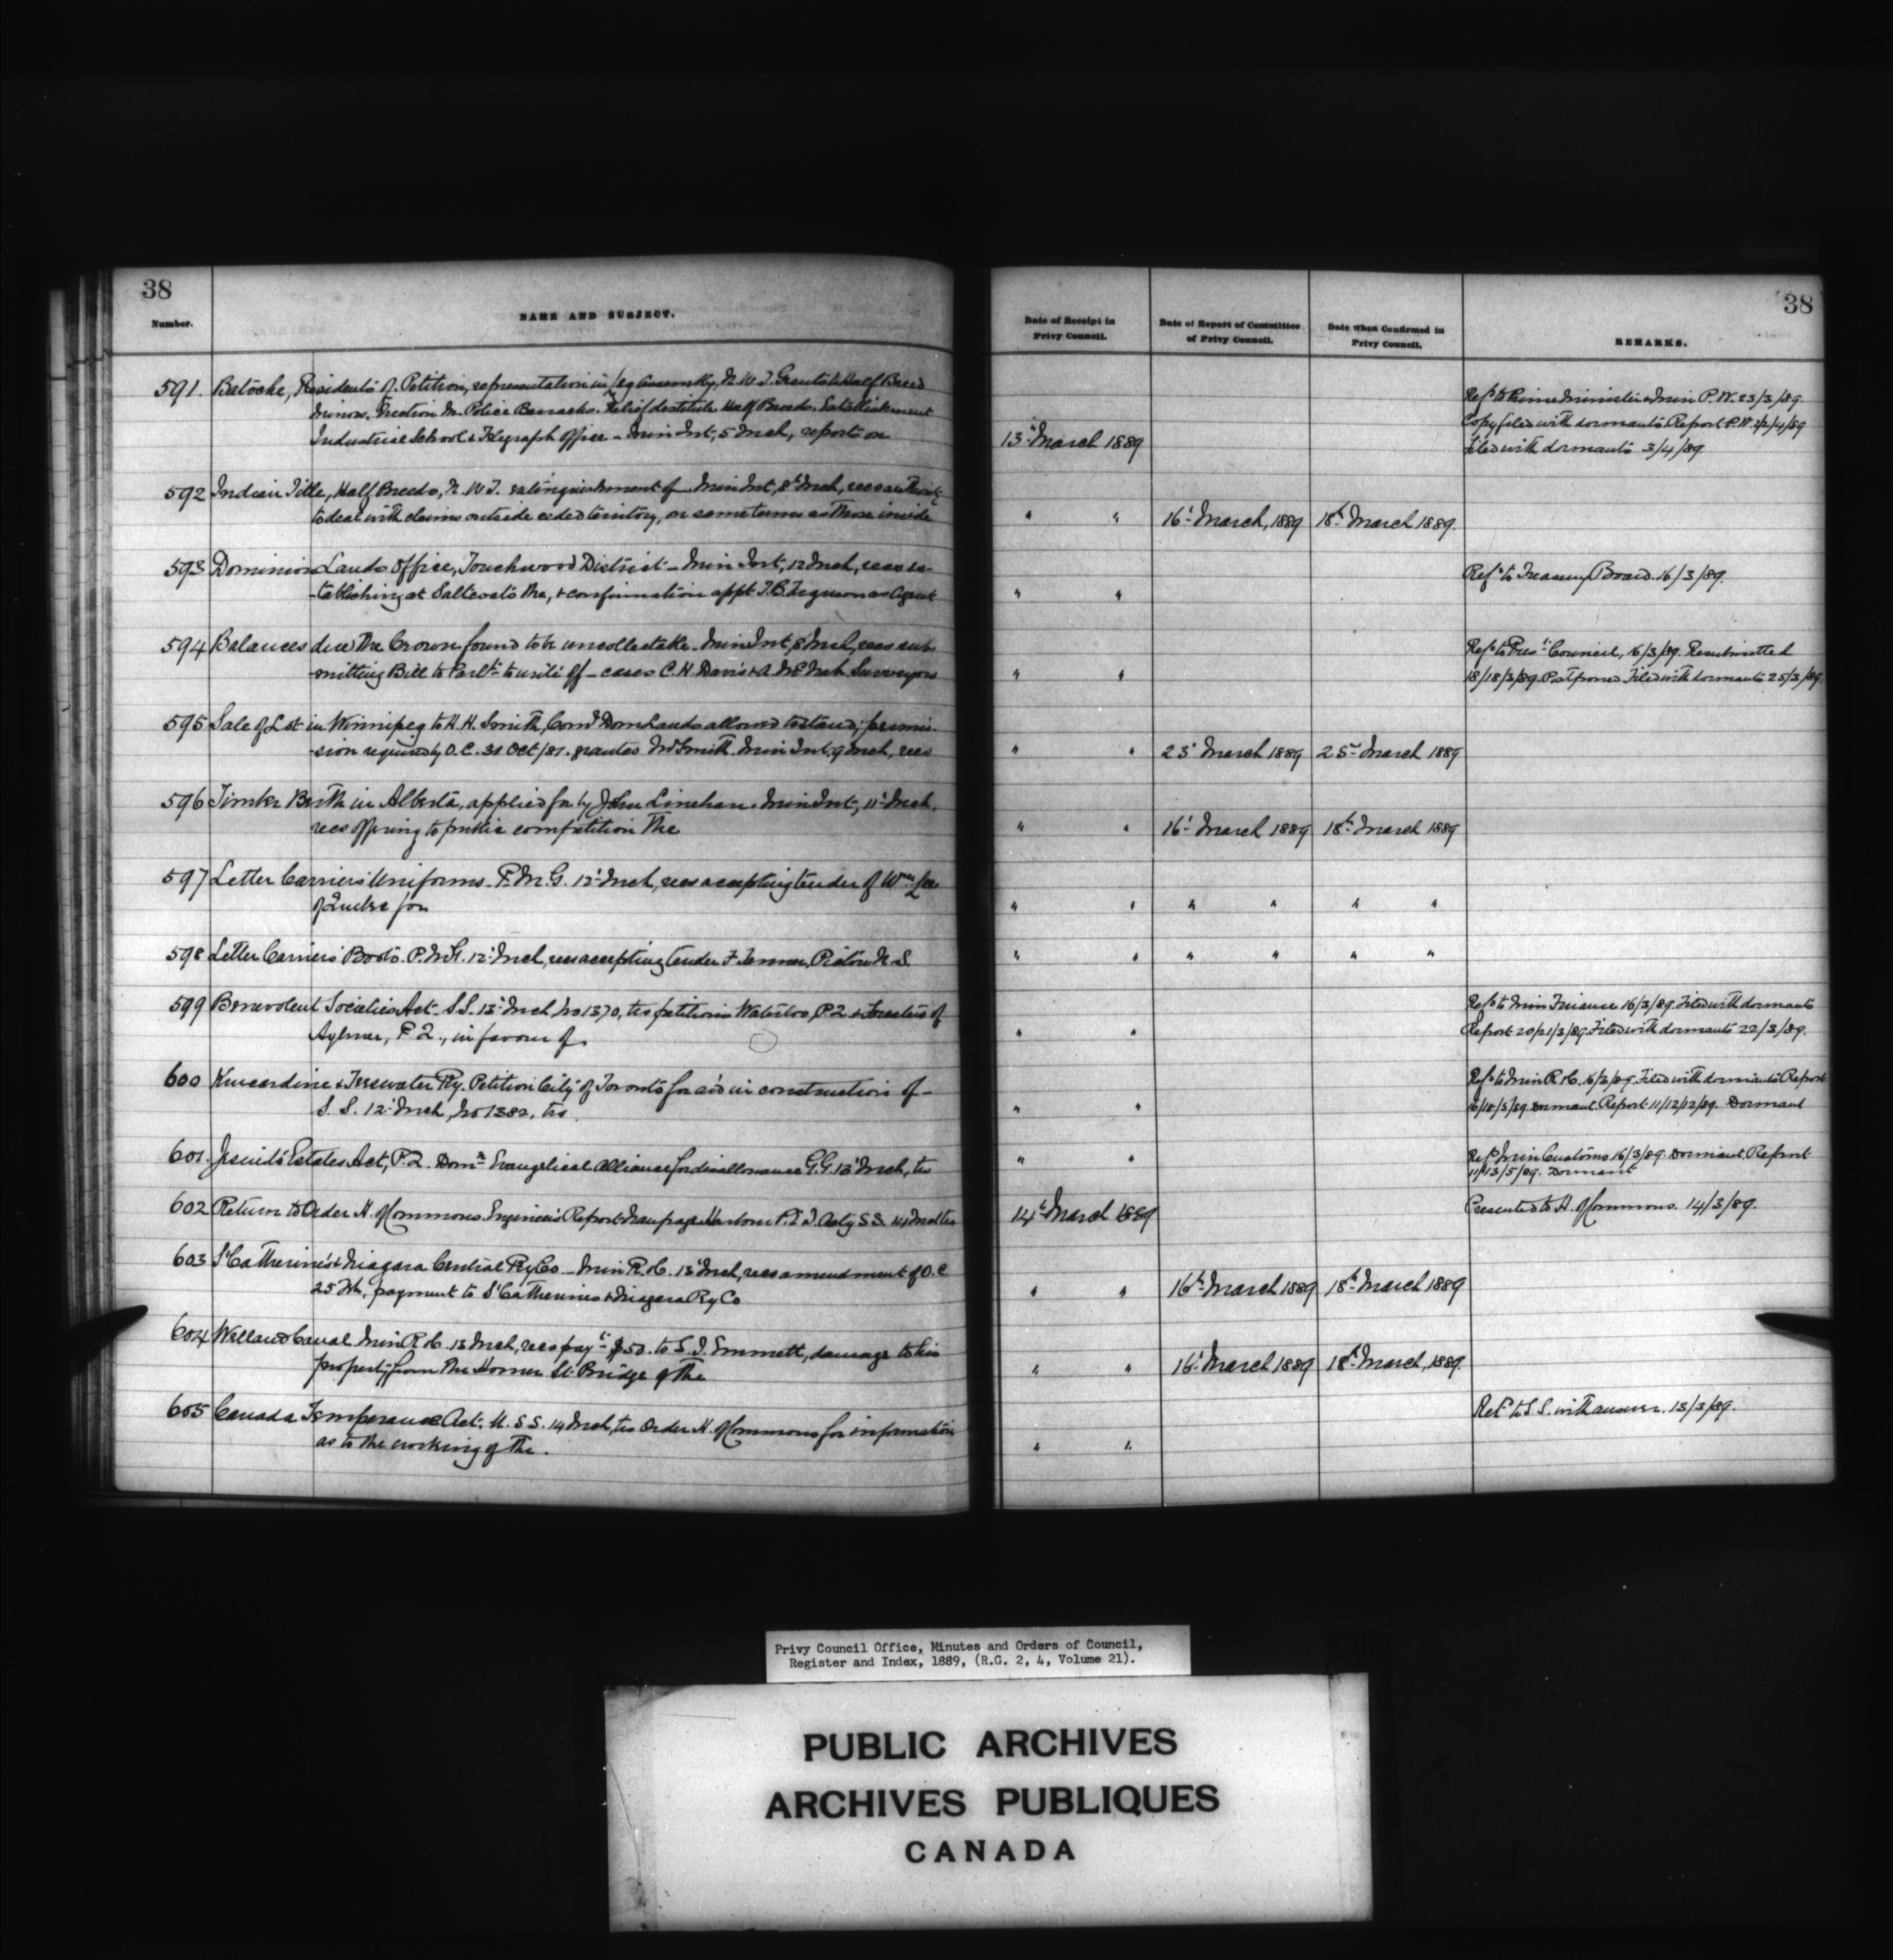 38
Number.
NAME AND SUBJECT.
591. Batoche, Residents of. Petition, representation in Leg Assembly, N. W. T. Grants to Half Breed
minors. Erection M. Police Barracks. Relief destitute Half Breeds. Establishment
Industrial School & Telegraph Office - Min Int, 5 Mch, reports on
592 Indian Title, Half Breeds, N. W. T. extinguishment of Min Int, 8th Mch, recs authority
to deal with claims outside ceded territory, on same terms as those inside
593 Dominion Lands Office, Touchwood District - Min Int, 12 Mch, recs es-
-tablishing at Saltcoats the, & confirmation appt T. B. Ferguson as Agent
594 Balances due the Crown found to be uncollectable. Min Int, 8 Mch, recs sub-
-mitting Bill to Parlt to write off - cases C. H. Davis & A Surveyors
595 Sale of Lot in Winnipeg to H. H. Smith, Comr Dom Lands allowed to stand; permis-
-sion required by O. C. 31 Oct/81. granted Mr Smith. Min Int, 9 Mch, recs
596 Timber Berth in Alberta, applied for by John Linehan. Min Int, 11 Mch,
recs offering to public competition the
597 Letter Carriers' Uniforms - P. M. G. 12 Mch, recs accepting tender of Wm Lee
of Quebec for
598 Letter Carriers' Boots. P. M. G. 12 Mch, recs accepting tender F Tanner, Pictou N. S.
599 Benevolent Societies Act - S. S. 13 Mch, No 1370, trs petitions Waterloo, P. Q. & Foresters of
Aylmer, P. Q., in favour of
600 Kincardine & Teeswater Ry. Petition City of Toronto for aid in construction of -
S. S. 12 Mch, No 1382, trs.
601. Jesuits Estates Act, P. Q. Domn Evangelical Alliance for disallowance G. G. 13 Mch, trs
602 Return to Order H. of Commons. Engineer's Report Harbour P. E. I. Actg S. S. 14 Mch trs
603 St Catherines & Niagara Central Ry Co - Min R. & C. 13 Mch, recs amendment of O. C.
25 Feb, payment to St Catherines & Niagara Ry Co
604 Welland Canal Min R. & C. 13 Mch, recs payt $50. to S. J. Emmett, damage to his
property from the Homer St Bridge of the
605 Canada Temperance Act. U. S. S. 14 Mch, trs Order H. of Commons for information
as to the working of the.
38
Date of Receipt in
Privy Council.
Date of Report of Committee
of Privy Council.
Date when Confirmed in
Privy Council.
REMARKS.
Refd to Prime Minister & Min P. W. 23/3/89.
Copy filed with dormants Report P. W. 2/2/4/89
13 March 1889
Filed with dormants 3/4/89
" " 16 March, 1889 18th March 1889.
Refd to Treasury Board. 16/3/89.
" "
Refd to Prest Council, 16/3/89. Resubmitted
" " 18/18/3/89. Postponed. Filed with dormants 25/3/89.
" " 23 March 1889 25 March 1889
" " 16 March 1889 18th March 1889
" " " " " "
" " " " " "
Refd to Min Finance 16/3/89. Filed with dormants
" " Report 20/21/3/89. Filed with dormants 22/3/89.
Refd to Min R. & C. 16/3/89. Filed with dormants Report
" " 16/18/3/89. Dormant. Report 11/12/12/89. Dormant
" " Refd Min Customs 16/3/89. Dormant. Report
11/13/5/89. Dormant
14 March 1889 Presented to H. of Commons. 14/3/89.
" " 16th March 1889 18th March 1889
" " 16 March 1889 18th March, 1889.
Retd to S. S. with answer. 15/3/89.
" "
Privy Council Office, Minutes and Orders of Council,
Register and Index, 1889, (R.G. 2, 4, Volume 21).
PUBLIC ARCHIVES
ARCHIVES PUBLIQUES
CANADA